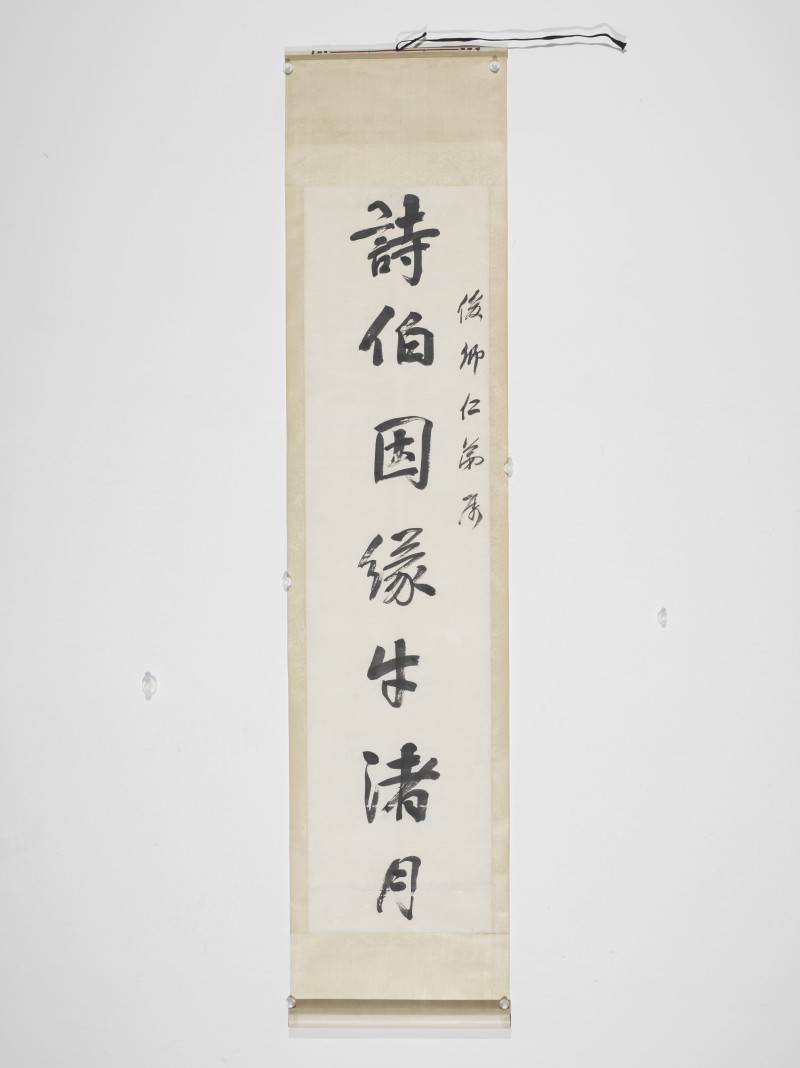 俊卿仁弟屬
詩伯因緣牛渚月